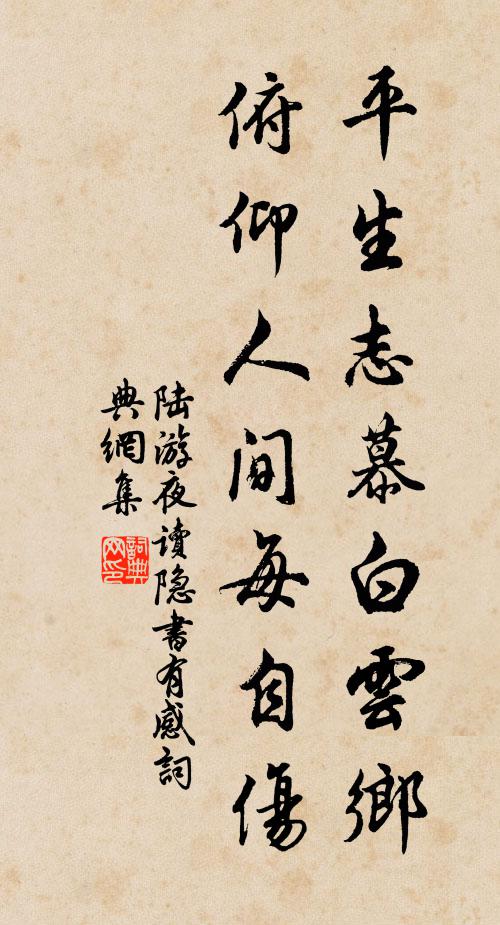 平生志慕白雲鄉
俯仰人間每自傷
陆游夜讀隐書有感詞
典網集
詞典
网印